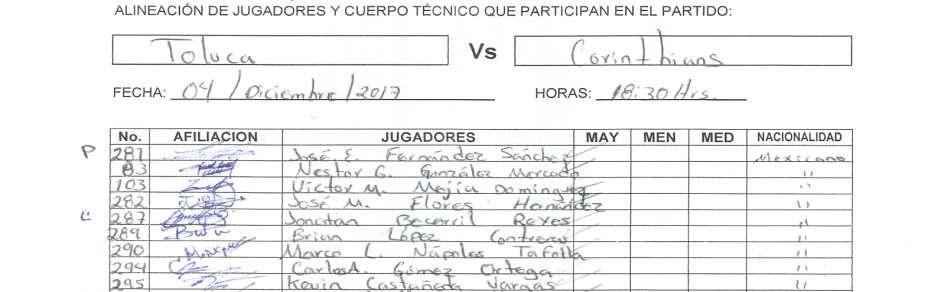 ALINEACIÓN DE JUGADORES Y CUERPO TÉCNICO QUE PARTICIPAN EN EL PARTIDO:
Toluca Vs Corinthians
FECHA: 04/Diciembre/2017 HORAS: 18:30 Hrs.
No. AFILIACION JUGADORES MAY MEN MED NACIONALIDAD
P 281 José E. Fernández Sánchez Mexicano
83 Nestor G. González Mercado "
103 Victor M. Mejía Dominguez "
282 José M. Flores Hernández "
C 287 Jonatan Becerril Reyes "
289 Brian López Contreras "
290 Marco L. Nápoles Tafolla "
294 Carlos A. Gómez Ortega "
295 Kevin Castañeda Vargas "